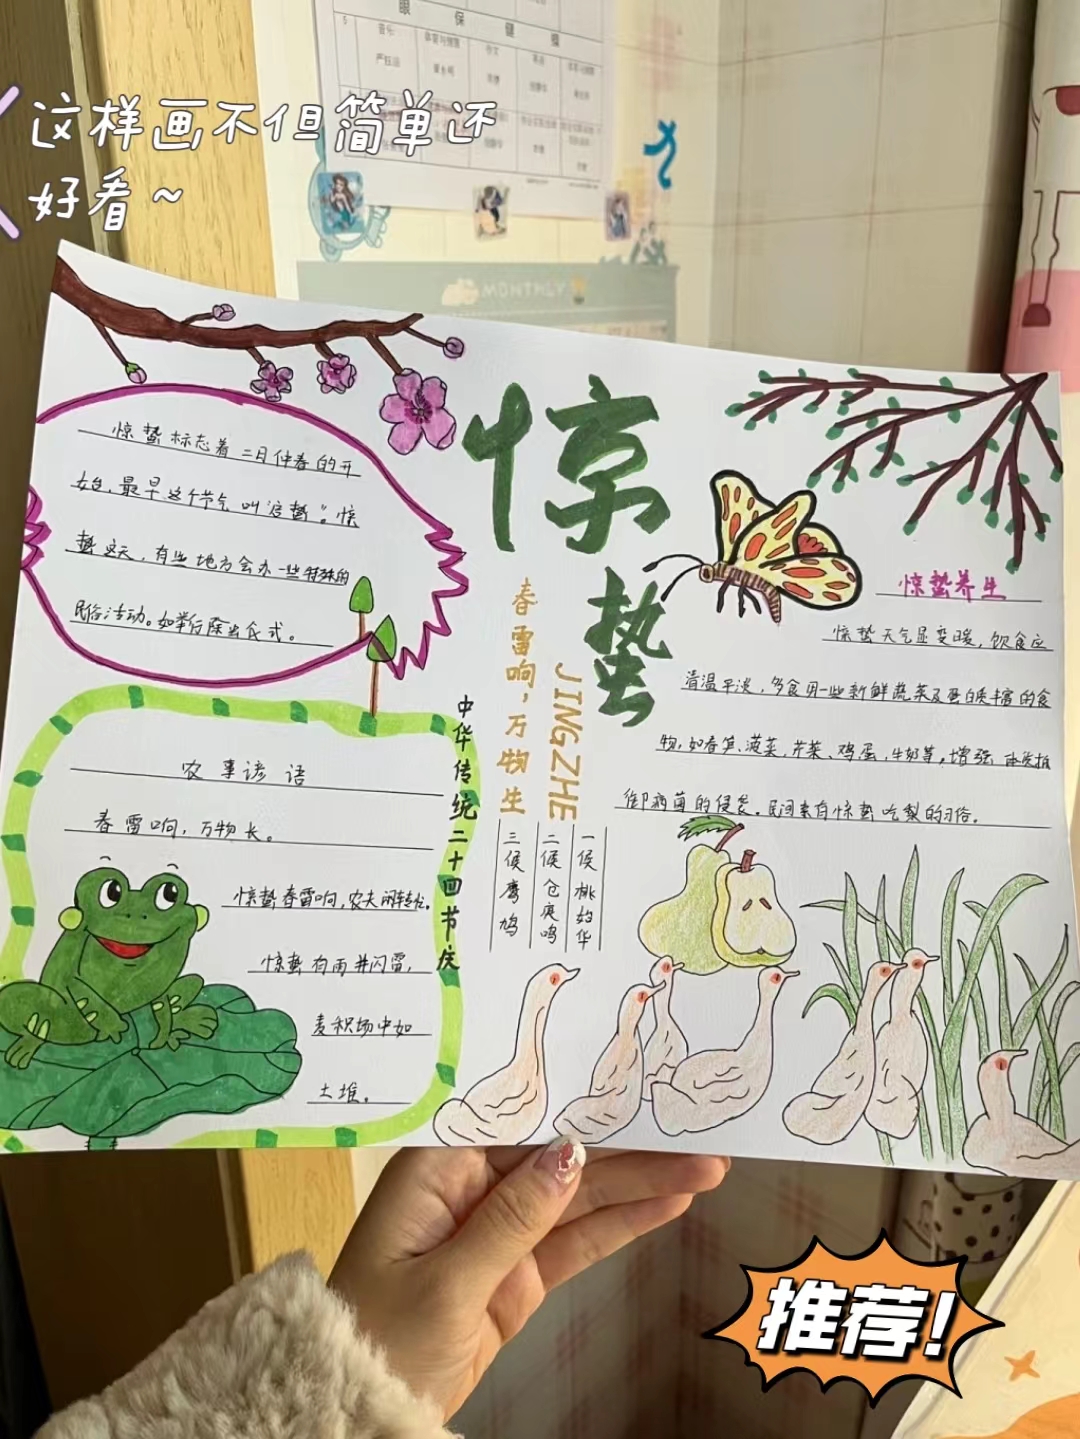 这样画不但简单还
好看~
眼保健操
MONTHLY
惊蛰
JINGZHE
春雷响，万物生
中华传统二十四节庆
惊蛰标志着二月仲春的开
始，最早这个节气叫"启蛰"。惊
蛰这天，有些地方会办一些特殊的
民俗活动。如举行除虫仪式。
农事谚语
春雷响，万物长。
惊蛰春雷响，农夫闲转忙。
惊蛰有雨并闪雷，
麦积场中如
土堆。
一候桃始华
二候仓庚鸣
三候鹰鸠
惊蛰养生
惊蛰天气显变暖，饮食应
清温平淡，多食用一些新鲜蔬菜及蛋白质丰富的食
物，如春笋、菠菜、芹菜、鸡蛋，牛奶等，增强体质抵
御病菌的侵袭。民间素有惊蛰吃梨的习俗。
推荐!